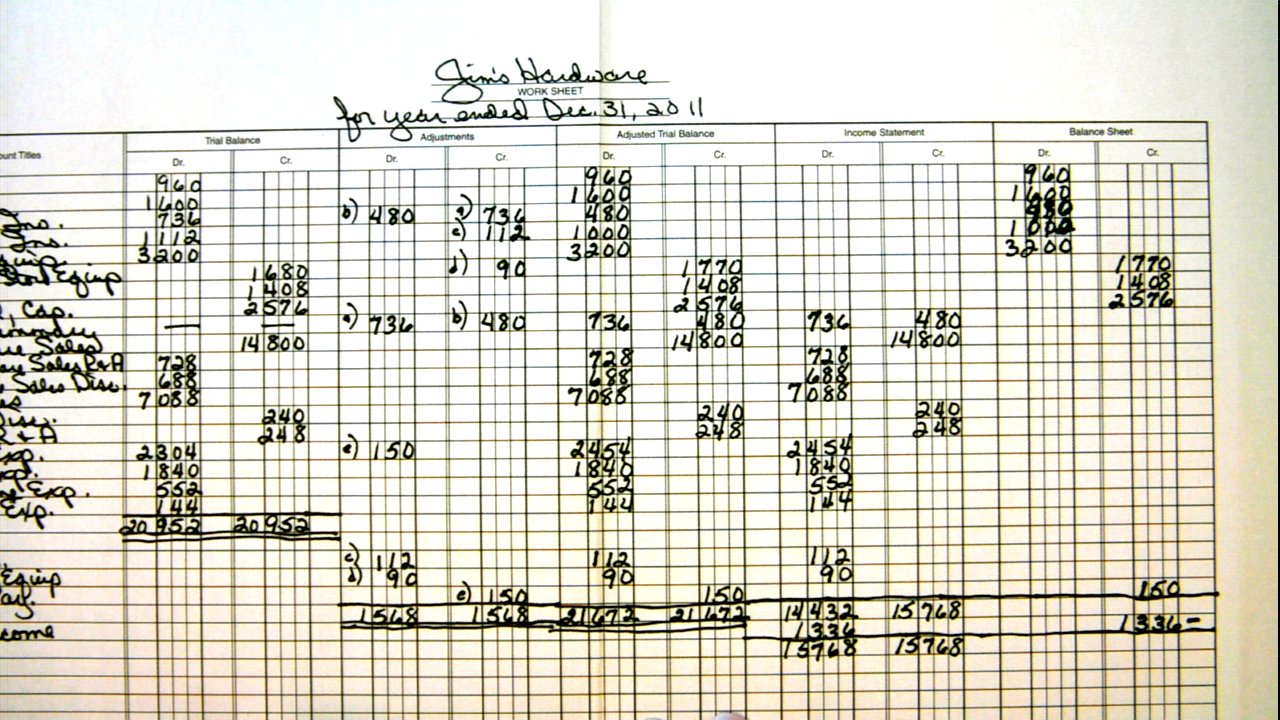 Jim's Hardware
WORK SHEET
for year ended Dec. 31, 2011
Trial Balance Adjustments Adjusted Trial Balance Income Statement Balance Sheet
ount Titles Dr. Cr. Dr. Cr. Dr. Cr. Dr. Cr. Dr. Cr.
960 960 960
1600 1600 1600
Ins. 736 b) 480 a) 736 480
Ins. 1112 c) 112 1000 1000
3200 3200 3200
Store Equip 1680 d) 90 1770 1770
1408 1408 1408
, Cap. 2576 2576 2576
— — a) 736 b) 480 736 480 736 480
Sales 14800 14800 14800
Sales R+A 728 728 728
Sales Disc. 688 688 688
7088 7088 7088
Disc. 240 240 240
R + A 248 248 248
Exp. 2304 e) 150 2454 2454
1840 1840 1840
Exp. 552 552 552
Exp. 144 144 144
20952 20952
c) 112 112 112
Equip d) 90 90 90
Pay. e) 150 150 150
1568 1568 21672 21672 14432 15768
come 1336 1336-
15768 15768